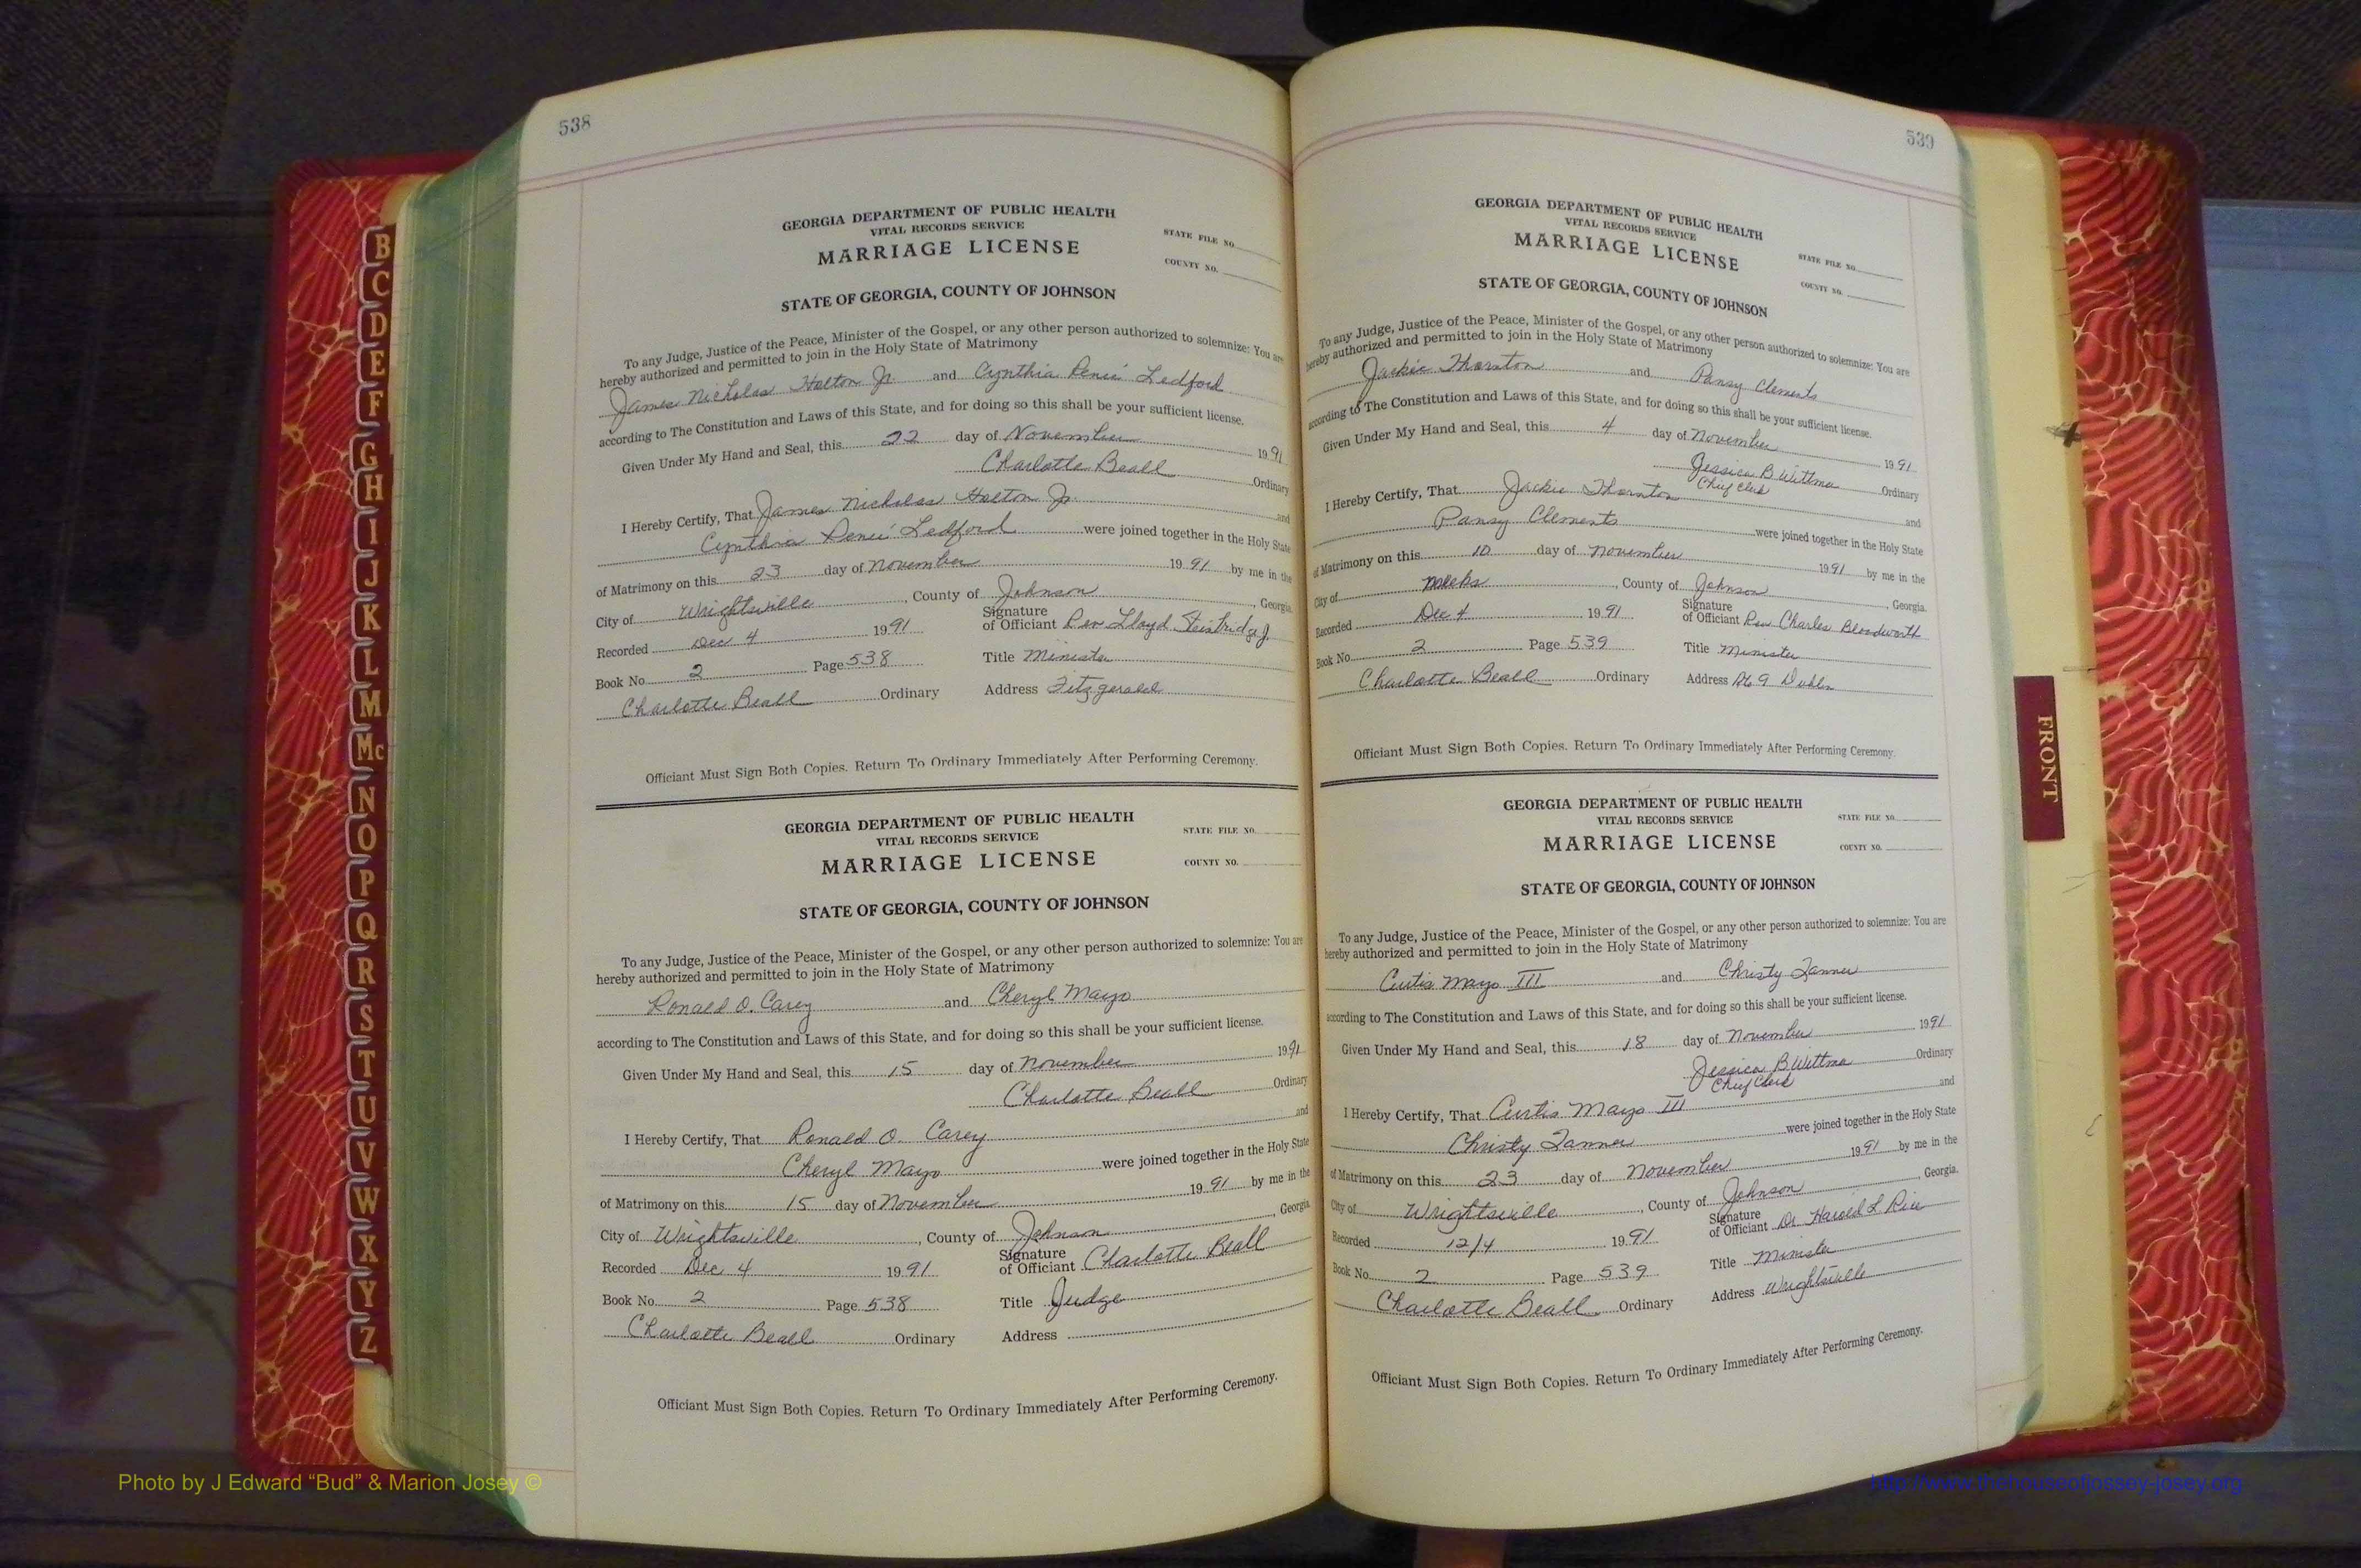 538
GEORGIA DEPARTMENT OF PUBLIC HEALTH
VITAL RECORDS SERVICE
MARRIAGE LICENSE
STATE FILE NO.
COUNTY NO.
STATE OF GEORGIA, COUNTY OF JOHNSON
To any Judge, Justice of the Peace, Minister of the Gospel, or any other person authorized to solemnize: You are
hereby authorized and permitted to join in the Holy State of Matrimony
James Nicholas Holton Jr and Cynthia Reneé Ledford
according to The Constitution and Laws of this State, and for doing so this shall be your sufficient license.
Given Under My Hand and Seal, this 22 day of November 1991
Charlotte Beall Ordinary
I Hereby Certify, That James Nicholas Holton Jr. and
Cynthia Reneé Ledford were joined together in the Holy State
of Matrimony on this 23 day of November 1991 by me in the
City of Wrightsville, County of Johnson, Georgia.
Recorded Dec 4 1991 Signature of Officiant Rev Lloyd
Book No. 2 Page 538 Title Minister
Charlotte Beall Ordinary Address Fitzgerald
Officiant Must Sign Both Copies. Return To Ordinary Immediately After Performing Ceremony.
GEORGIA DEPARTMENT OF PUBLIC HEALTH
VITAL RECORDS SERVICE
MARRIAGE LICENSE
STATE FILE NO.
COUNTY NO.
STATE OF GEORGIA, COUNTY OF JOHNSON
To any Judge, Justice of the Peace, Minister of the Gospel, or any other person authorized to solemnize: You are
hereby authorized and permitted to join in the Holy State of Matrimony
Ronald O. Carey and Cheryl Mayo
according to The Constitution and Laws of this State, and for doing so this shall be your sufficient license.
Given Under My Hand and Seal, this 15 day of November 1991
Charlotte Beall Ordinary
I Hereby Certify, That Ronald O. Carey and
Cheryl Mayo were joined together in the Holy State
of Matrimony on this 15 day of November 1991 by me in the
City of Wrightsville, County of Johnson, Georgia
Recorded Dec 4 1991 Signature of Officiant Charlotte Beall
Book No. 2 Page 538 Title Judge
Charlotte Beall Ordinary Address
Officiant Must Sign Both Copies. Return To Ordinary Immediately After Performing Ceremony.
539
GEORGIA DEPARTMENT OF PUBLIC HEALTH
VITAL RECORDS SERVICE
MARRIAGE LICENSE
STATE FILE NO.
COUNTY NO.
STATE OF GEORGIA, COUNTY OF JOHNSON
To any Judge, Justice of the Peace, Minister of the Gospel, or any other person authorized to solemnize: You are
hereby authorized and permitted to join in the Holy State of Matrimony
Jackie Thornton and Pansy Clements
according to The Constitution and Laws of this State, and for doing so this shall be your sufficient license.
Given Under My Hand and Seal, this 4 day of November 1991
Jessica B Wittma Ordinary
Chief Clerk
I Hereby Certify, That Jackie Thornton and
Pansy Clements were joined together in the Holy State
of Matrimony on this 10 day of November 1991 by me in the
City of Meeks, County of Johnson, Georgia.
Recorded Dec 4 1991 Signature of Officiant Rev Charles Bloodworth
Book No. 2 Page 539 Title Minister
Charlotte Beall Ordinary Address 9 Dublin
Officiant Must Sign Both Copies. Return To Ordinary Immediately After Performing Ceremony.
GEORGIA DEPARTMENT OF PUBLIC HEALTH
VITAL RECORDS SERVICE
MARRIAGE LICENSE
STATE FILE NO.
COUNTY NO.
STATE OF GEORGIA, COUNTY OF JOHNSON
To any Judge, Justice of the Peace, Minister of the Gospel, or any other person authorized to solemnize: You are
hereby authorized and permitted to join in the Holy State of Matrimony
Curtis Mayo III and Christy Tanner
according to The Constitution and Laws of this State, and for doing so this shall be your sufficient license.
Given Under My Hand and Seal, this 18 day of November 1991
Jessica B Wittma Ordinary
Chief Clerk
I Hereby Certify, That Curtis Mayo III and
Christy Tanner were joined together in the Holy State
of Matrimony on this 23 day of November 1991 by me in the
City of Wrightsville, County of Johnson, Georgia.
Recorded 12/4 1991 Signature of Officiant Dr Harold L Rice
Book No. 2 Page 539 Title Minister
Charlotte Beall Ordinary Address Wrightsville
Officiant Must Sign Both Copies. Return To Ordinary Immediately After Performing Ceremony.
B
C
D
E
F
G
H
I
J
K
L
M
Mc
N
O
P
Q
R
S
T
U
V
W
X
Y
Z
FRONT
Photo by J Edward “Bud” & Marion Josey ©
http://www.thehouseofjossey-josey.org